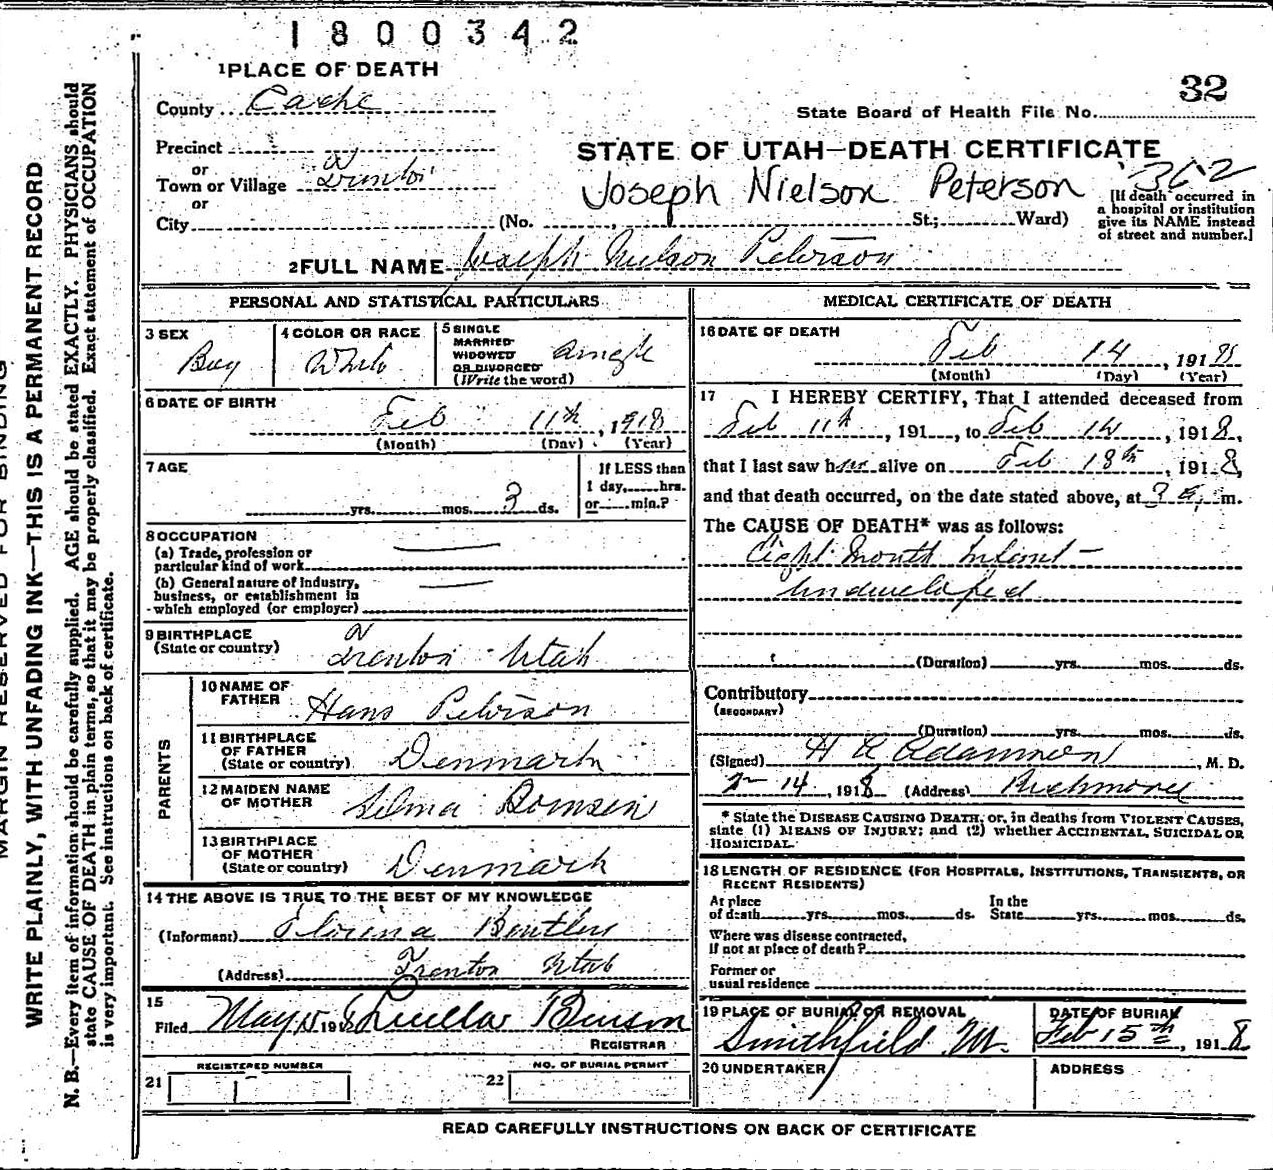 1800342
1 PLACE OF DEATH
32
County Cache
State Board of Health File No.
Precinct
or
Town or Village Trenton
or
City
STATE OF UTAH—DEATH CERTIFICATE
362
Joseph Nielson Peterson
(No. St.; Ward)
[If death occurred in
a hospital or institution
give its NAME instead
of street and number.]
2 FULL NAME Joseph Nielson Peterson
PERSONAL AND STATISTICAL PARTICULARS
3 SEX
Boy
4 COLOR OR RACE
White
5 SINGLE
MARRIED
WIDOWED
OR DIVORCED
(Write the word)
Single
6 DATE OF BIRTH
Feb 11th, 1918
(Month) (Day) (Year)
7 AGE
yrs. mos. 3 ds.
If LESS than
1 day, hrs.
or min.?
8 OCCUPATION
(a) Trade, profession or
particular kind of work
(b) General nature of industry,
business, or establishment in
which employed (or employer)
9 BIRTHPLACE
(State or country)
Trenton Utah
PARENTS
10 NAME OF
FATHER
Hans Peterson
11 BIRTHPLACE
OF FATHER
(State or country)
Denmark
12 MAIDEN NAME
OF MOTHER
Selma
13 BIRTHPLACE
OF MOTHER
(State or country)
Denmark
14 THE ABOVE IS TRUE TO THE BEST OF MY KNOWLEDGE
(Informant) Bentley
(Address) Trenton Utah
15
Filed May 191 Luella Benson
REGISTRAR
21 REGISTERED NUMBER
1
22 NO. OF BURIAL PERMIT
MEDICAL CERTIFICATE OF DEATH
16 DATE OF DEATH
Feb 14, 1918
(Month) (Day) (Year)
17 I HEREBY CERTIFY, That I attended deceased from
Feb 11th, 191 , to Feb 14, 1918,
that I last saw him alive on Feb 18th, 1918,
and that death occurred, on the date stated above, at 3 m.
The CAUSE OF DEATH* was as follows:
Eight Month Infant—
Undeveloped
(Duration) yrs. mos. ds.
Contributory
(SECONDARY)
(Duration) yrs. mos. ds.
(Signed) H Adamson, M. D.
2-14, 1918 (Address) Richmond
* State the DISEASE CAUSING DEATH, or, in deaths from VIOLENT CAUSES,
state (1) MEANS OF INJURY; and (2) whether ACCIDENTAL, SUICIDAL OR
HOMICIDAL.
18 LENGTH OF RESIDENCE (FOR HOSPITALS, INSTITUTIONS, TRANSIENTS, OR
RECENT RESIDENTS)
At place
of death yrs. mos. ds.
In the
State yrs. mos. ds.
Where was disease contracted,
If not at place of death?
Former or
usual residence
19 PLACE OF BURIAL OR REMOVAL
Smithfield Ut.
DATE OF BURIAL
Feb 15th, 1918
20 UNDERTAKER
ADDRESS
READ CAREFULLY INSTRUCTIONS ON BACK OF CERTIFICATE
MARGIN RESERVED FOR BINDING
WRITE PLAINLY, WITH UNFADING INK—THIS IS A PERMANENT RECORD
N. B.—Every item of information should be carefully supplied. AGE should be stated EXACTLY. PHYSICIANS should
state CAUSE OF DEATH in plain terms, so that it may be properly classified. Exact statement of OCCUPATION
is very important. See instructions on back of certificate.